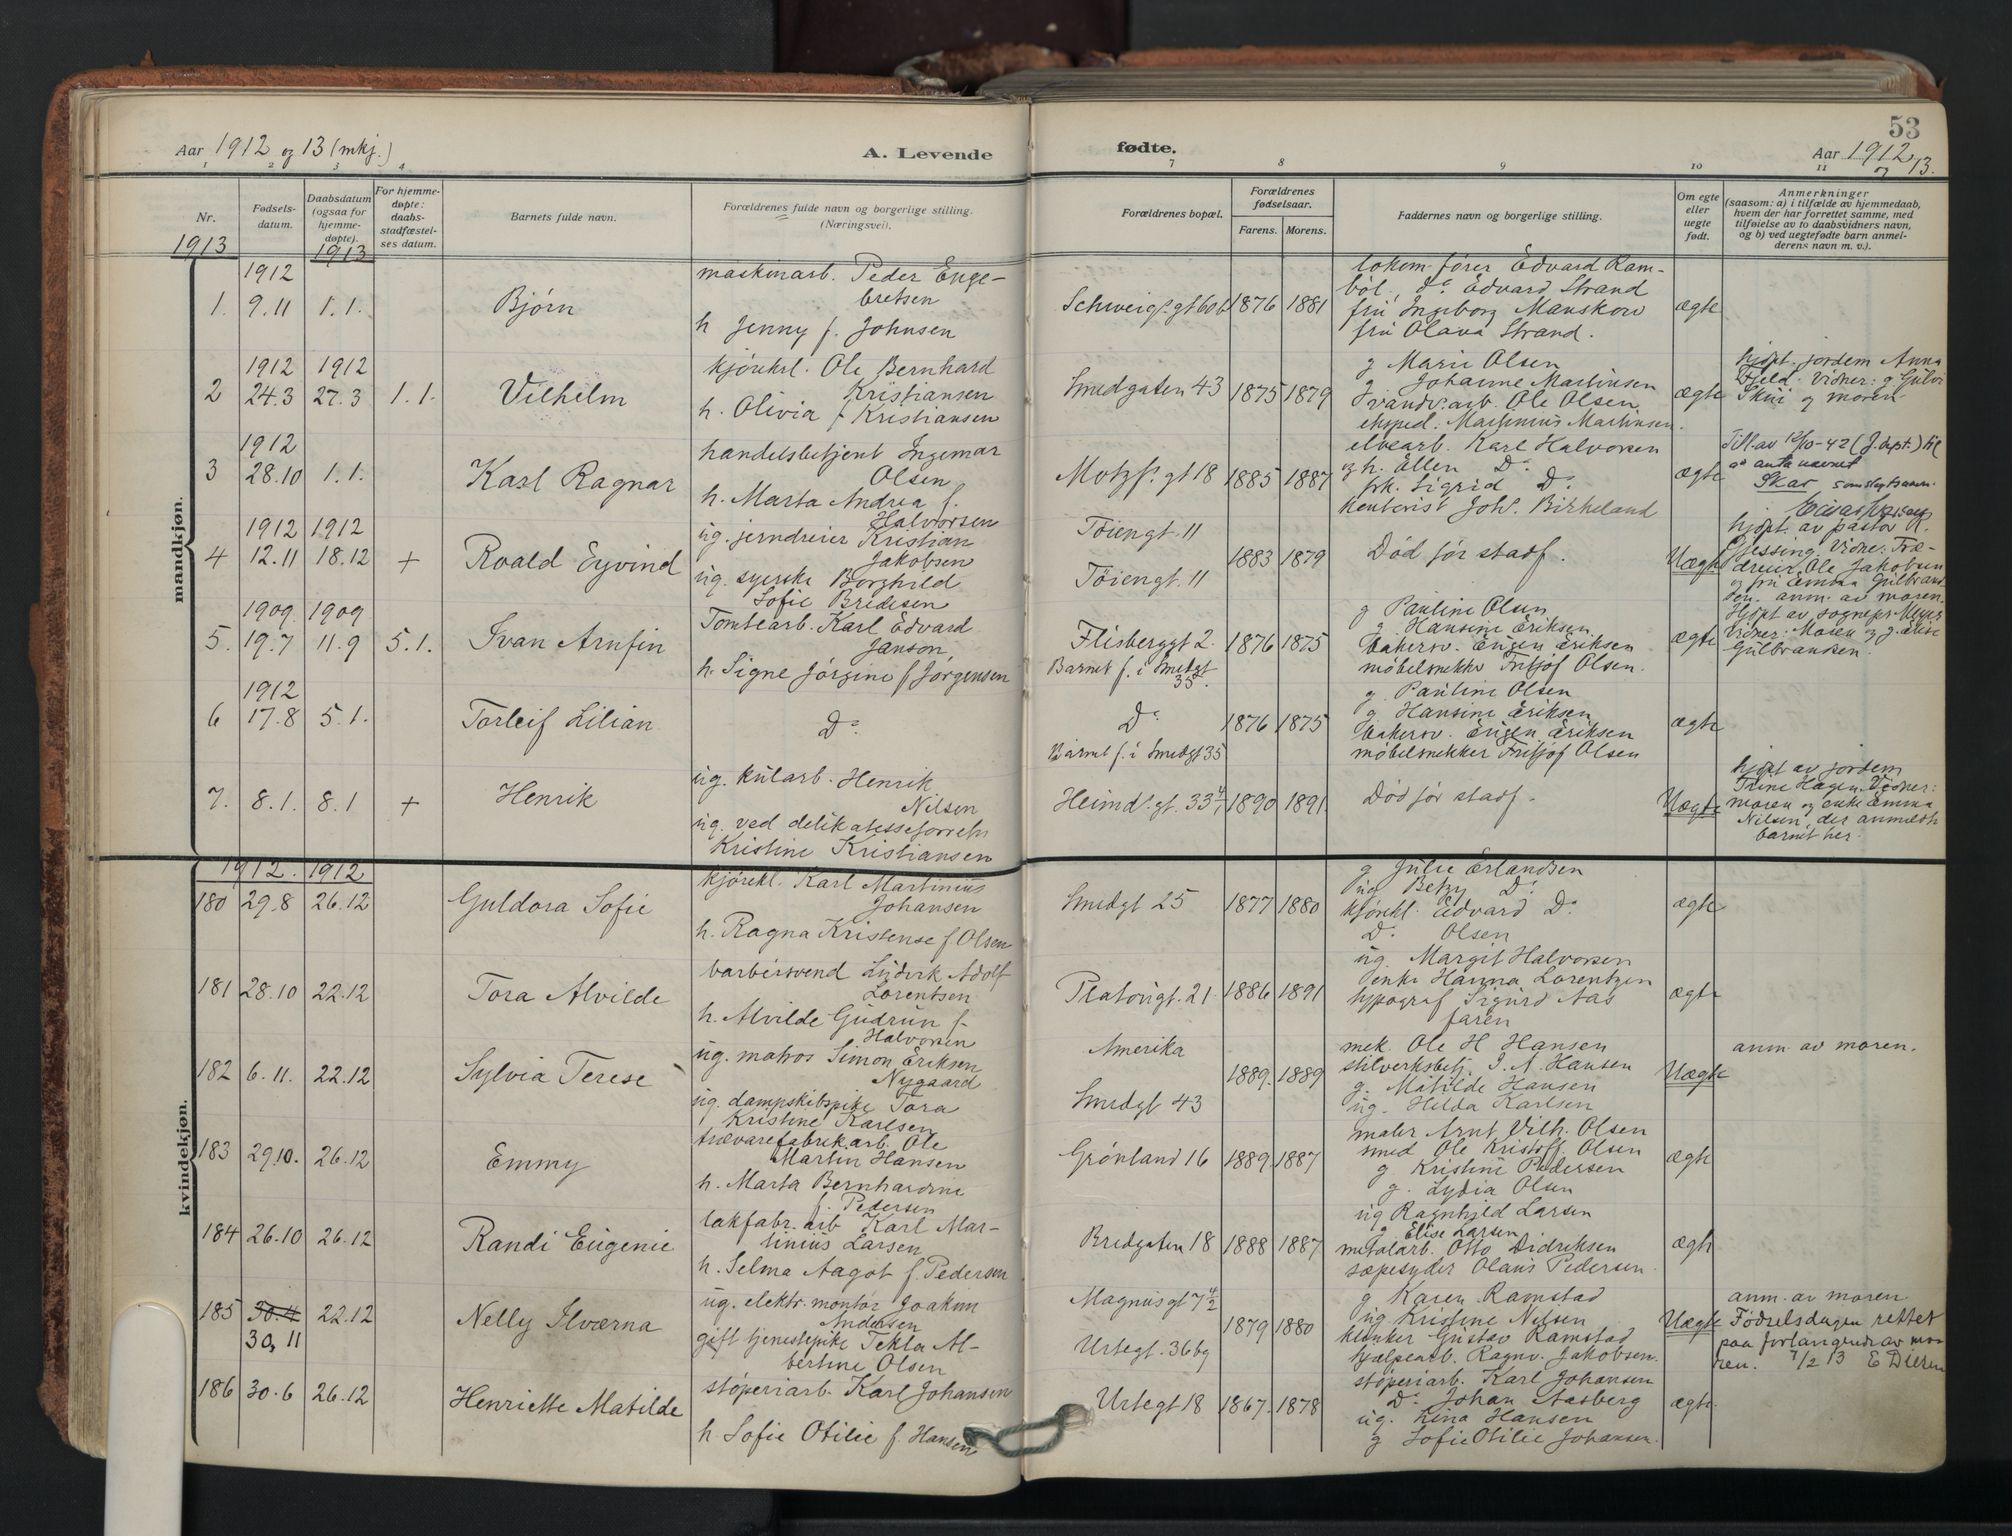 53
Aar 1912 og 13 (mkj.)
A. Levende
fødte.
Aar 1912 og 13.
1 2 3 4
7 8 9 10 11
Nr.
Fødsels-
datum.
Daabsdatum
(ogsaa for
hjemme-
døpte).
For hjemme-
døpte:
daabs-
stadfæstel-
ses datum.
Barnets fulde navn.
Forældrenes fulde navn og borgerlige stilling.
(Næringsvei).
Forældrenes bopæl.
Forældrenes
fødselsaar.
Farens. Morens.
Faddernes navn og borgerlige stilling.
Om egte
eller
uegte
født.
Anmerkninger
(saasom: a) i tilfælde av hjemmedaab,
hvem der har forrettet samme, med
tilføielse av to daabsvidners navn,
og b) ved uegtefødte barn anmel-
derens navn m. v.).
1913
1913
mandkjøn.
1.
1912
9.11
1.1.
Bjørn
maskinarb. Peder Enge-
bretsen
h Jenny f. Johnsen
Schweigs. gt 60b
1876
1881
lokom. fører Edvard Ram-
böl, Do Edvard Strand
fru Ingeborg Manskow
fru Olava Strand.
ægte
2
1912
24.3
1912
27.3
1.1.
Vilhelm
kjørekl. Ole Bernhard
Kristiansen
h. Olivia f Kristiansen
Smedgaten 43
1875
1879
g Marie Olsen
g Johanne Martinsen
vandv.arb. Ole Olsen
eksped. Martinius Martinsen.
ægte
hjdpt. jordem Anna
Fjeld. Vidner: g Gulvi
Skui og moren
3
1912
28.10
1.1.
Karl Ragnar
handelsbetjent Ingemar
Olsen
h. Marta Andrea f.
Halvorsen
Motzfs. gt 18
1885
1887
elvearb. Karl Halvorsen
og h. Ellen Do
frk. Sigrid Do
kontorist Joh. Birkeland
ægte
Till. av 12/10-42 (J.dept.) til
at anta navnet
Skar som slegtsnavn.
4
1912
12.11
1912
18.12
+
Roald Eyvind
ug. jerndreier Kristian
Jakobsen
ug. syerske Borghild
Sofie Bredesen
Töiengt. 11
Töiengt. 11
1883
1879
Död før stadf.
Uægte
hjdpt. av pastor K.
Gjessing. Vidner: Træ-
dreier Ole Jakobsen
og fru Emma Gulbrand-
sen. anm. av moren.
5.
1909
19.7
1909
11.9
5.1.
Ivan Arnfin
Tomtearb. Karl Edvard
Janson
h. Signe Jörgine f Jörgensen
Flisberggt 2.
Barnet f. i Smedgt
35.
1876
1875
g Pauline Olsen
g. Hansine Eriksen
bakersv. Eugen Eriksen
möbelsnekk Fritjof Olsen.
ægte
Hjdpt av sogneps Meyer
Vidner: Moren og g. Elise
Gulbrandsen.
6
1912
17.8
5.1.
Torleif Lilian
Do
Do
Barnet f. i Smedgt 35
1876
1875
g. Pauline Olsen
g Hansine Eriksen
bakersv. Eugen Eriksen
möbelsnekker Fritjof Olsen
ægte
7.
8.1.
8.1
+
Henrik
ug. kularb. Henrik
Nilsen
ug. ved delikatesseforretn
Kristine Kristiansen
Heimd. gt. 33 4/1
1890
1891
Död før stadf.
Uægte
hjdpt av jordem
Trine Hagen. Vidner:
moren og enke Emma
Nilsen, der anmeldte
barnet her.
kvindekjøn.
1912. 1912
180
29.8
26.12
Guldora Sofie
kjørekl. Karl Martinius
Johansen
h. Ragna Kristense f Olsen
Smedgt 25
1877
1880
g Julie Erlandsen
ug Betzy Do
kjørekl. Edvard Do
Do Olsen
ægte
181
28.10
22.12
Tora Alvilde
barbersvend Ludvik Adolf
Lorentsen
h. Alvilde Gudrun f.
Halvorsen
Platougt. 21
1886
1891
ug. Margit Halvorsen
enke Hanna Lorentzen
typograf Sigurd Aas
faren
ægte
182
6.11.
22.12
Sylvia Terese
ug. matros Simon Eriksen
Nygaard
ug. dampskibspike Tora
Kristine Karlsen
Amerika
Smedgt 43
1889.
1889
mek. Ole H Hansen
stilverksbetj. I. A. Hansen
g. Matilde Hansen
ug. Hilda Karlsen
Uægte
anm. av moren.
183
29.10.
26.12
Emmy
trævarefabrikarb. Ole
Martin Hansen
h. Marta Bernhardine
f. Pedersen
Grönland 16
1889.
1887
maler Arnt Vilh. Olsen
smed Ole Kristoff. Olsen
g Kristine Pedersen
g. Lydia Olsen
ægte
184
26.10
26.12
Randi Eugenie
lakfabr. arb Karl Mar-
tinius Larsen
h. Selma Aagot f. Pedersen
Bredgaten 18
1888
1887
ug Ragnhild Larsen
g Elise Larsen
metalarb. Otto Didriksen
sæpesyder Olaus Pedersen.
ægte
185
30.4
30.11
22.12
Nelly Ilværna
ug. elektr. montör Joakim
Andersen
gift tjenestepike Tekla Al-
bertine Olsen
Magnusgt 7 4/2
Urtegt. 36 bg
1879
1880
g Karen Ramstad
ug Kristine Nilsen
klinker Gustav Ramstad
hjælpearb. Ragnv. Jakobsen.
Uægte
anm. av moren.
Födselsdagen rettet
paa forlangende av mo-
ren. 7/2 13 E Diesen
186
30.6
26.12
Henriette Matilde
støperiarb. Karl Johansen
h. Sofie Otilie f. Hansen
Urtegt 18
1867.
1878
støperiarb. Karl Johansen
Do Johan Aasberg
ug. Lina Hansen
g Sofie Otilie Johansen.
ægte.